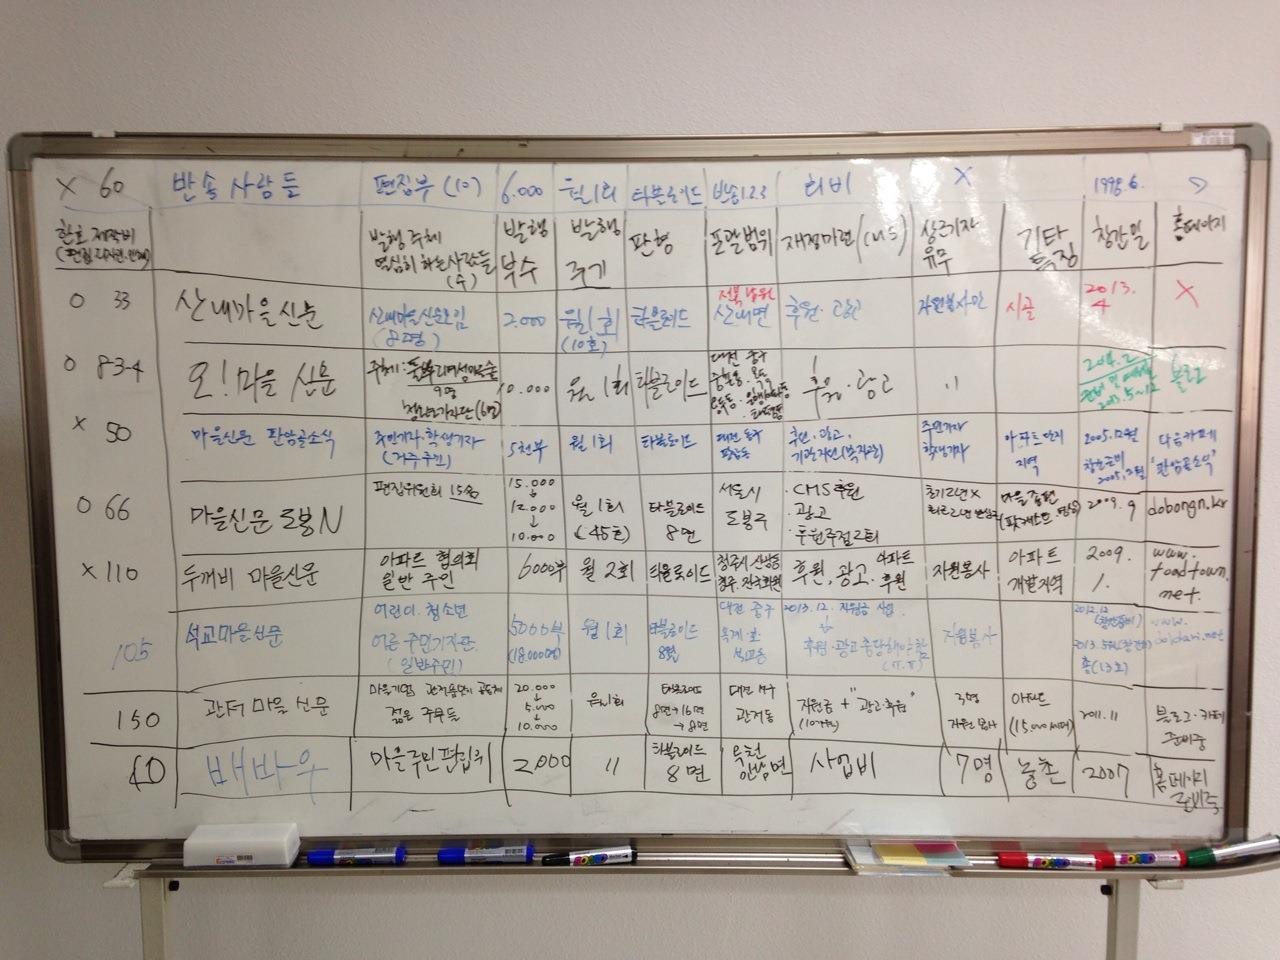 x 60 반송 사람들 편집부 (10) 6.000 월1회 타블로이드 반송1.2.3 회비 X 1998.6.
한호 제작비 발행주체 발행 발행 판형 포괄범위 재정마련 상근기자 기타 창간일 홈페이지
열심히 하는 사람들 부수 주기 유무 특징
(수)
0 33 산내마을신문 산내마을신문모임 2.000 월1회 타블로이드 전북 남원 후원·광고 자원봉사만 시골 2013. X
(8명) (10호) 산내면 4
0 83-4 오! 마을 신문 주체: 10.000 월 1회 타블로이드 대전 중구 후원·광고 〃 2014.2 블로그
9명 2013.5~12
x 50 마을신문 판암골소식 주민기자·학생기자 5천부 월1회 타블로이드 대전 동구 후원·광고, 주민기자 아파트단지 2005.12월 다음카페
(거주주민) 판암동 기관지원(복지관) 학생기자 지역 창간준비 '판암골소식'
0 66 마을신문 도봉N 편집위원회 15명 15.000 월1회 타블로이드 서울시 ·CMS후원 초기2년 X 2009.9 dobongn.kr
12.000 (45호) 8면 도봉구 ·광고
10.000 ·후원주점
x 110 두꺼비 마을신문 아파트 협의회 6000부 월 2회 타블로이드 청주시 산남동 후원, 광고. 아파트 자원봉사 아파트 2009. www.
일반 주민 후원 개발지역 1. toadtown.
net.
105 석교마을신문 어린이. 청소년 5000부 월1회 타블로이드 대전 중구 2013.12. 지원금 사업. 자원봉사 2012.12 www.
어른 주민기자단. (18.000명) 8면 석교동 후원·광고 충당해야 함
(일반주민) (ㅠ.ㅠ)
150 관저 마을 신문 20.000 월1회 타블로이드 대전 서구 지원금 + "광고·후원" 3명 아파트 2011.11 블로그·카페
젊은 주부들 5.000 8면→16면 관저동 자원 봉사 준비중
10.000 →8면
40 배바우 마을주민편집위 2,000 〃 타블로이드 옥천 사업비 7명 농촌 2007 홈페이지
8면 안남면 준비중